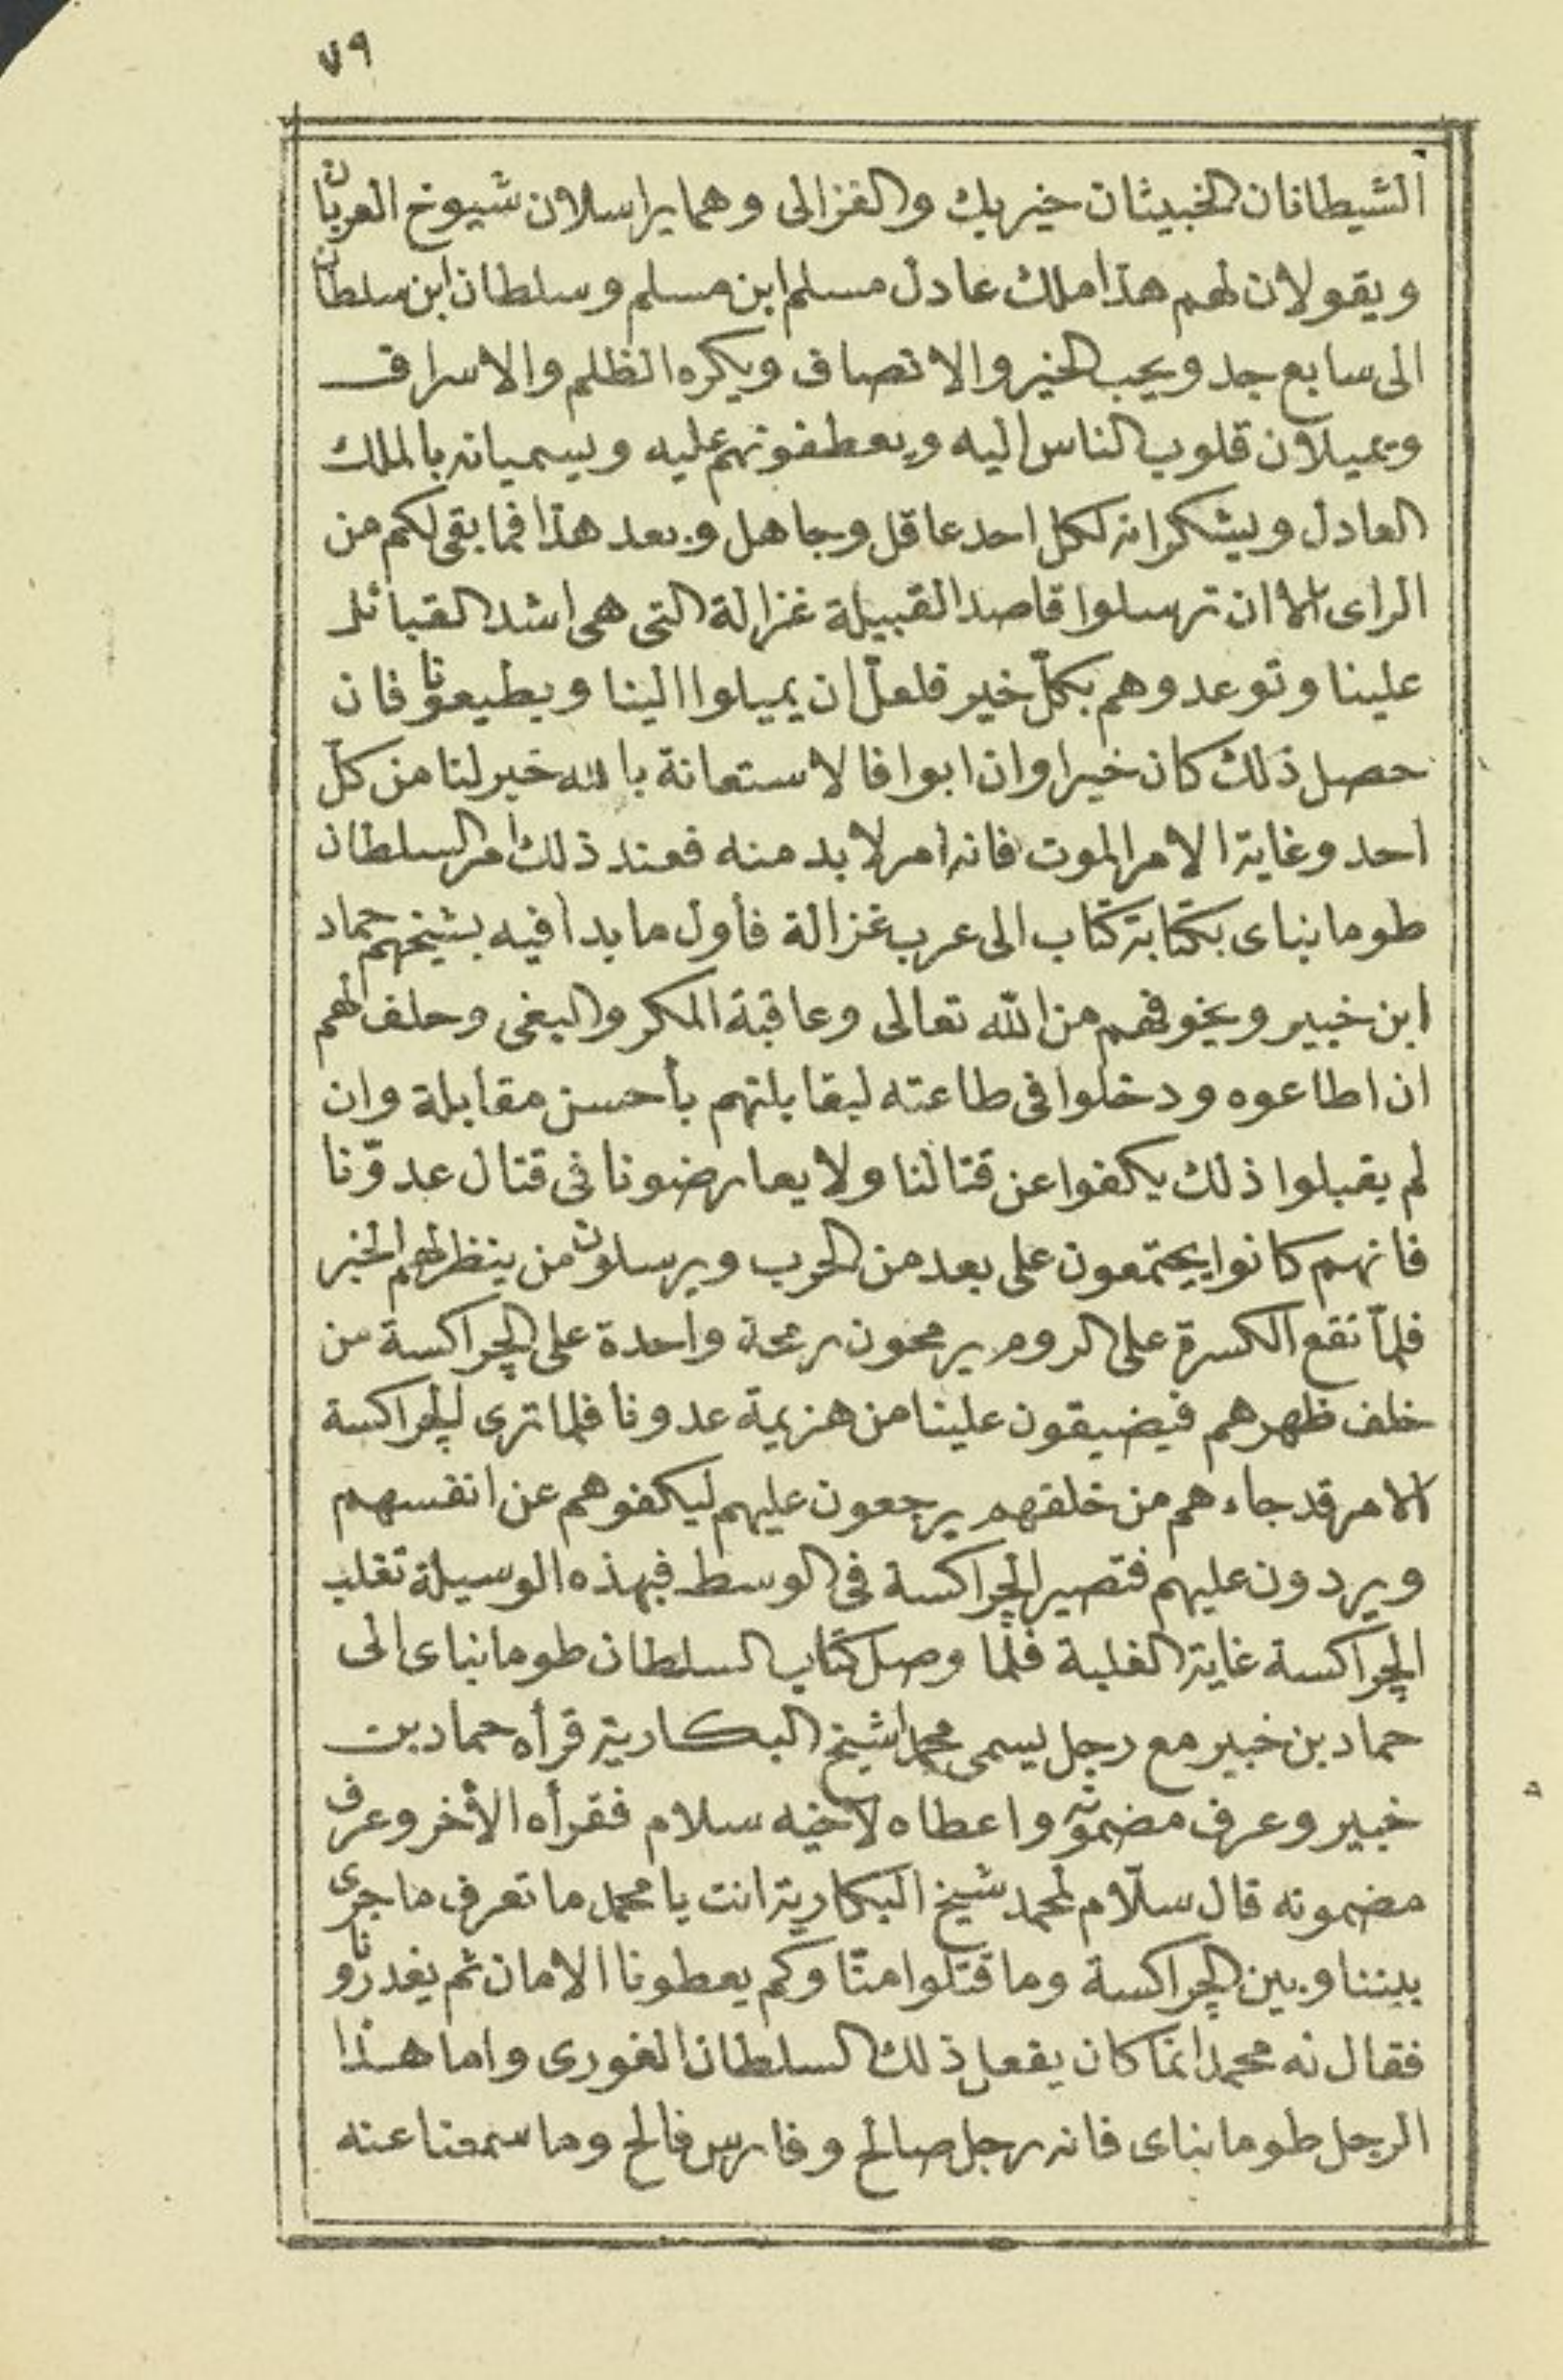 ٧٩
الشيطانان الخبيثان خير بك والغزالى وهما يراسلان شيوخ العربان
ويقولان لهم هذا ملك عادل مسلم ابن مسلم وسلطان ابن سلطان
الى سابع جد ويحب الخير والانصاف ويكره الظلم والاسراف
ويميلان قلوب الناس اليه ويعطفونهم عليه ويسميانه بالملك
العادل ويشكرانه لكل احد عاقل وجاهل وبعد هذا فما بقى لكم من
الراى الا ان ترسلوا قاصدا لقبيلة غزالة التى هى اشد القبائل
علينا وتوعدوهم بكلّ خير فلعلّ ان يميلوا الينا ويطيعونا فان
حصل ذلك كان خيرا وان ابوا فالاستعانة بالله خير لنا من كلّ
احد وغاية الامر الموت فانه امر لابد منه فعند ذلك أمر السلطان
طومانباى بكتابة كتاب الى عرب غزالة فأول ما بدا فيه بشيخهم حماد
ابن خبير ويخوفهم من الله تعالى وعاقبة المكر والبغى وحلف لهم
ان اطاعوه ودخلوا فى طاعته ليقابلنهم بأحسن مقابلة وان
لم يقبلوا ذلك يكفوا عن قتالنا ولا يعارضونا فى قتال عدوّنا
فانهم كانوا يجتمعون على بعد من الحرب ويرسلون من ينظر لهم الخبر
فلمّا تقع الكسرة على الروم يرمحون رمحة واحدة على الجراكسة من
خلف ظهرهم فيضيقون علينا من هزيمة عدونا فلما ترى الجراكسة
الامر قد جاءهم من خلفهم يرجعون عليهم ليكفوهم عن انفسهم
ويردون عليهم فتصير الجراكسة فى الوسط فبهذه الوسيلة تغلب
الجراكسة غاية الغلبة فلمّا وصل كتاب السلطان طومانباى الى
حماد بن خبير مع رجل يسمى محمدا شيخ البكارية قرأه حماد بن
خبير وعرف مضمونه واعطاه لأخيه سلام فقرأه الأخر وعرف
مضمونه قال سلّام لمحمد شيخ البكارية انت يا محمد ما تعرف ما جرى
بيننا وبين الجراكسة وما قتلوا منّا وكم يعطونا الامان ثم يغدرونا
فقال له محمد انما كان يفعل ذلك السلطان الغورى واما هذا
الرجل طومانباى فانه رجل صالح وفارس فالح وما سمعنا عنه